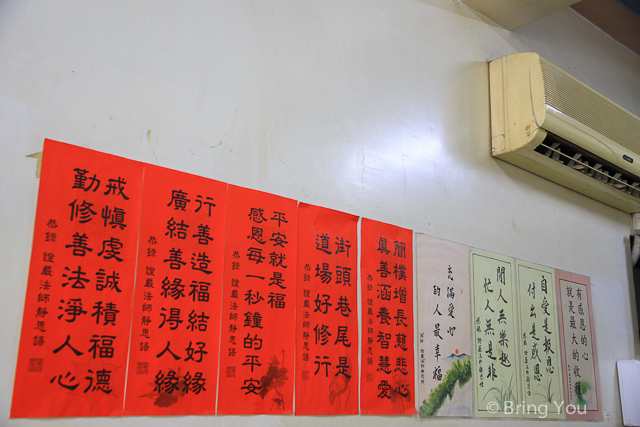 有感恩的心
就是最大的收穫
自愛是報恩
付出是感恩
閒人無樂趣
忙人無是非
充滿愛心
的人最幸福
簡樸增長慈悲心
真善涵養智慧愛
恭錄 證嚴法師靜思語
街頭巷尾是
道場好修行
恭錄 證嚴法師靜思語
平安就是福
感恩每一秒鐘的平安
恭錄 證嚴法師靜思語
行善造福結好緣
廣結善緣得人緣
恭錄 證嚴法師靜思語
戒慎虔誠積福德
勤修善法淨人心
恭錄 證嚴法師靜思語
© Bring You